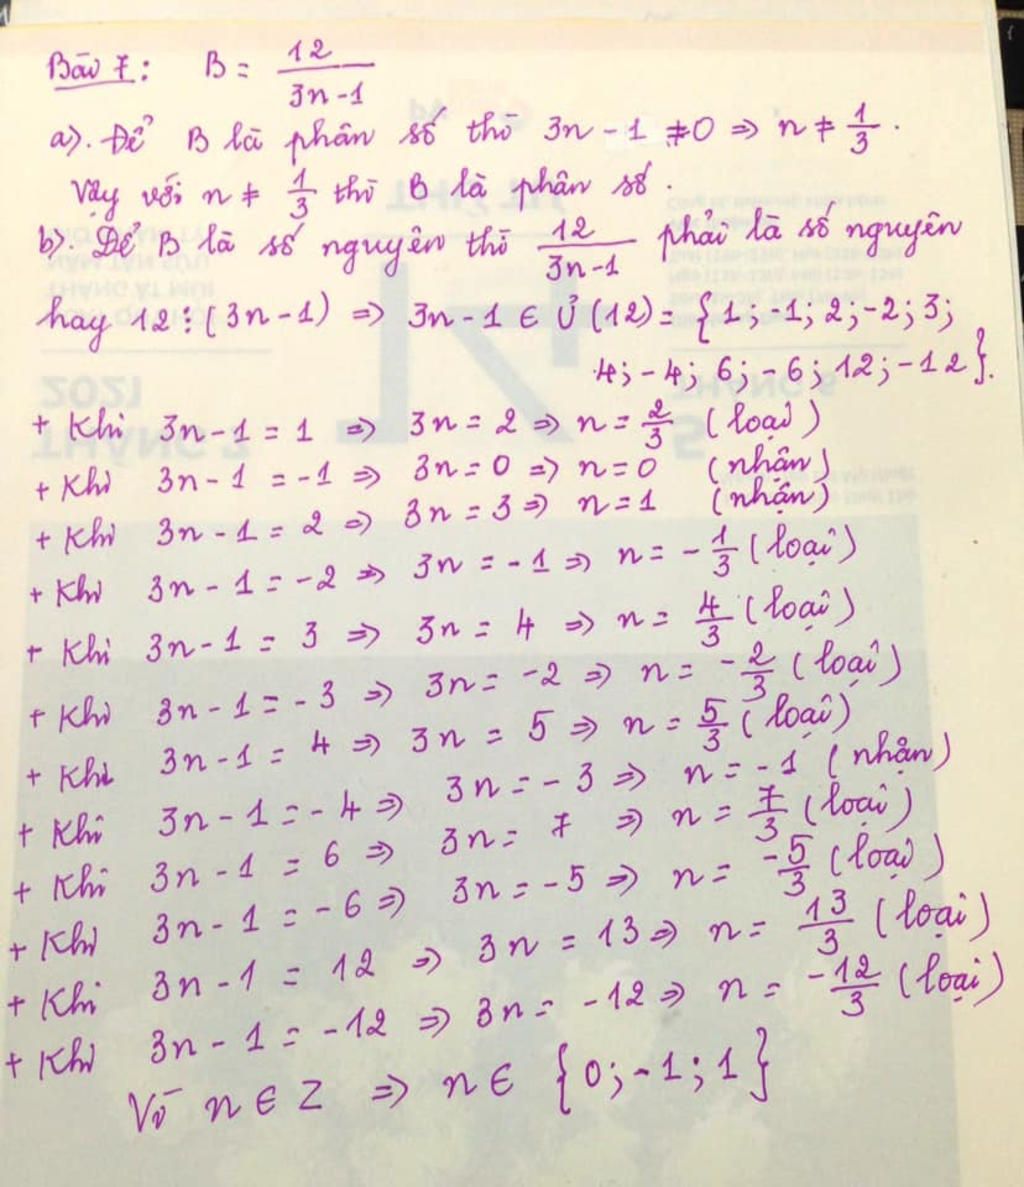 Bài 7: B = 12/(3n-1)
a). Để B là phân số thì 3n - 1 ≠ 0 ⇒ n ≠ 1/3.
Vậy với n ≠ 1/3 thì B là phân số.
b). Để B là số nguyên thì 12/(3n-1) phải là số nguyên
hay 12 ⋮ (3n-1) ⇒ 3n-1 ∈ Ư(12) = {1; -1; 2; -2; 3;
4; -4; 6; -6; 12; -12}.
+ Khi 3n-1 = 1 ⇒ 3n = 2 ⇒ n = 2/3 (loại)
+ Khi 3n-1 = -1 ⇒ 3n = 0 ⇒ n = 0 (nhận)
+ Khi 3n-1 = 2 ⇒ 3n = 3 ⇒ n = 1 (nhận)
+ Khi 3n-1 = -2 ⇒ 3n = -1 ⇒ n = -1/3 (loại)
+ Khi 3n-1 = 3 ⇒ 3n = 4 ⇒ n = 4/3 (loại)
+ Khi 3n-1 = -3 ⇒ 3n = -2 ⇒ n = -2/3 (loại)
+ Khi 3n-1 = 4 ⇒ 3n = 5 ⇒ n = 5/3 (loại)
+ Khi 3n-1 = -4 ⇒ 3n = -3 ⇒ n = -1 (nhận)
+ Khi 3n-1 = 6 ⇒ 3n = 7 ⇒ n = 7/3 (loại)
+ Khi 3n-1 = -6 ⇒ 3n = -5 ⇒ n = -5/3 (loại)
+ Khi 3n-1 = 12 ⇒ 3n = 13 ⇒ n = 13/3 (loại)
+ Khi 3n-1 = -12 ⇒ 3n = -12 ⇒ n = -12/3 (loại)
Vì n ∈ Z ⇒ n ∈ {0; -1; 1}